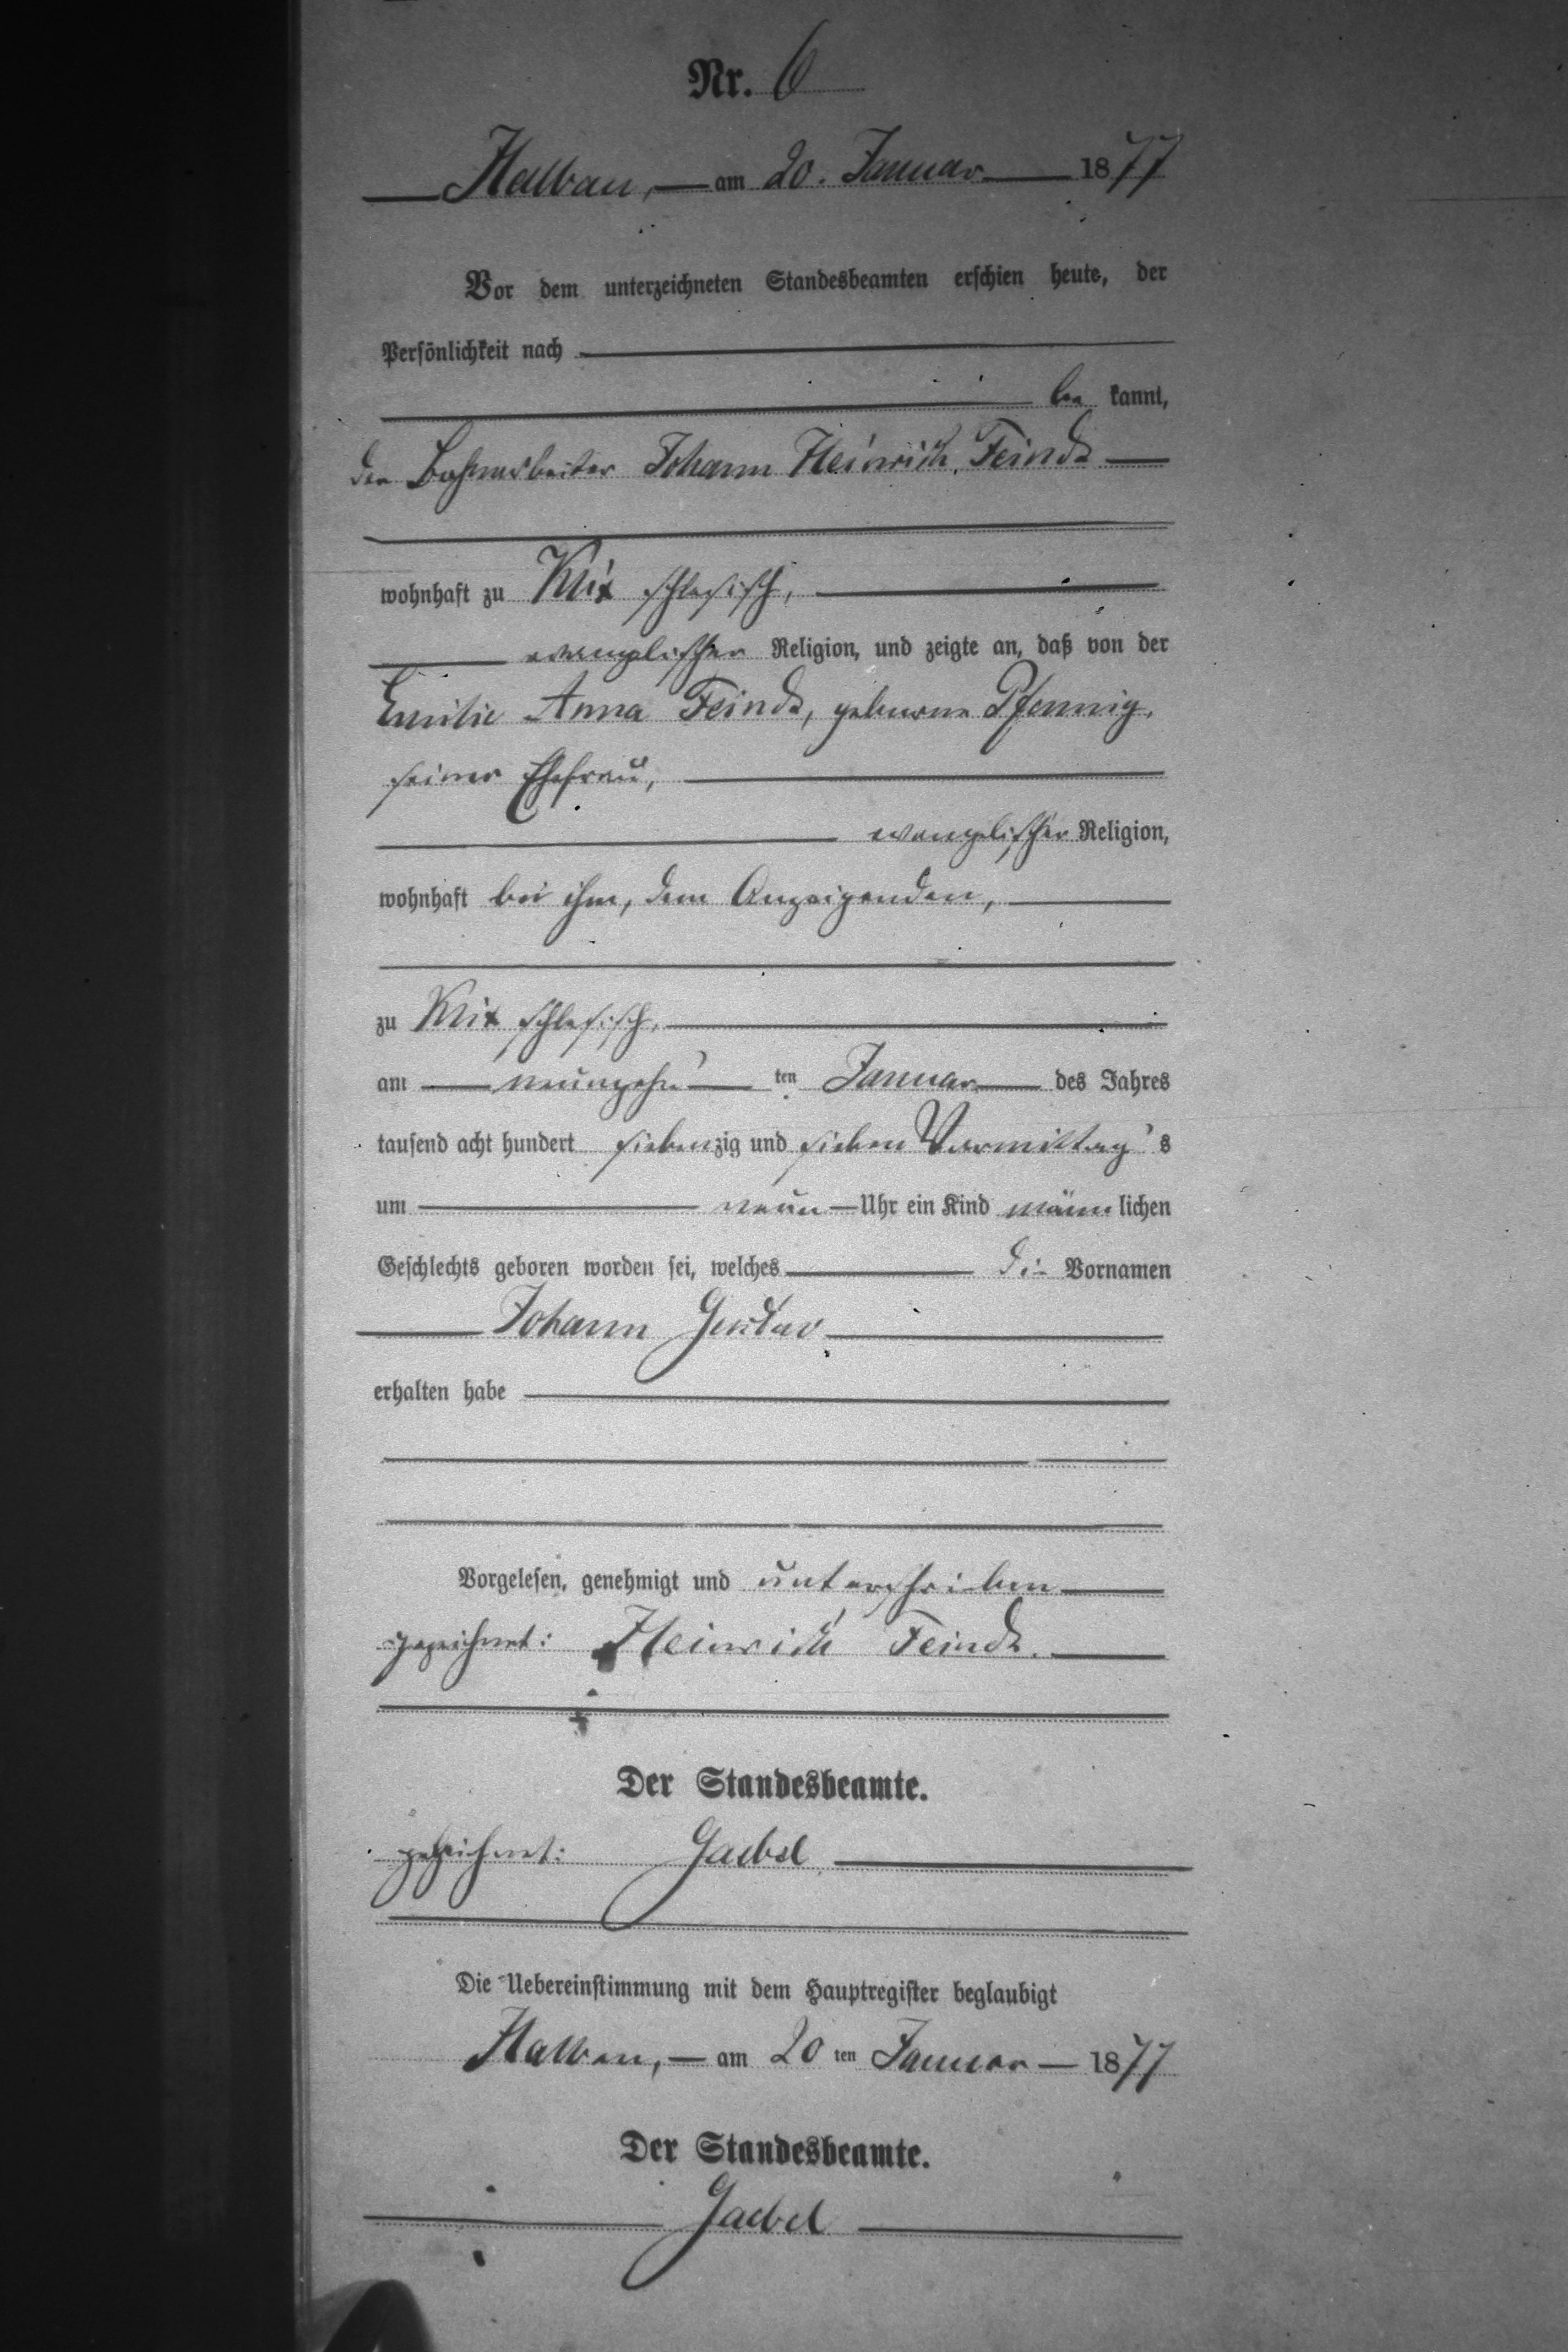 Nr. 6
Halbau, am 20. Januar 1877
Vor dem unterzeichneten Standesbeamten erschien heute, der
Persönlichkeit nach
be kannt,
der Bahnarbeiter Johann Heinrich Feindt
wohnhaft zu Klix schlesisch,
evangelischer Religion, und zeigte an, daß von der
Emilie Anna Feindt, geborene Pfennig,
seiner Ehefrau,
evangelischer Religion,
wohnhaft bei ihm, dem Anzeigenden,
zu Klix schlesisch,
am neunzehn ten Januar des Jahres
tausend acht hundert siebenzig und sieben Vormittag s
um neun Uhr ein Kind männ lichen
Geschlechts geboren worden sei, welches die Vornamen
Johann Gustav
erhalten habe
Vorgelesen, genehmigt und unterschrieben
gezeichnet: Heinrich Feindt.
Der Standesbeamte.
gezeichnet: Gaebel
Die Uebereinstimmung mit dem Hauptregister beglaubigt
Halbau, am 20 ten Januar 1877
Der Standesbeamte.
Gaebel